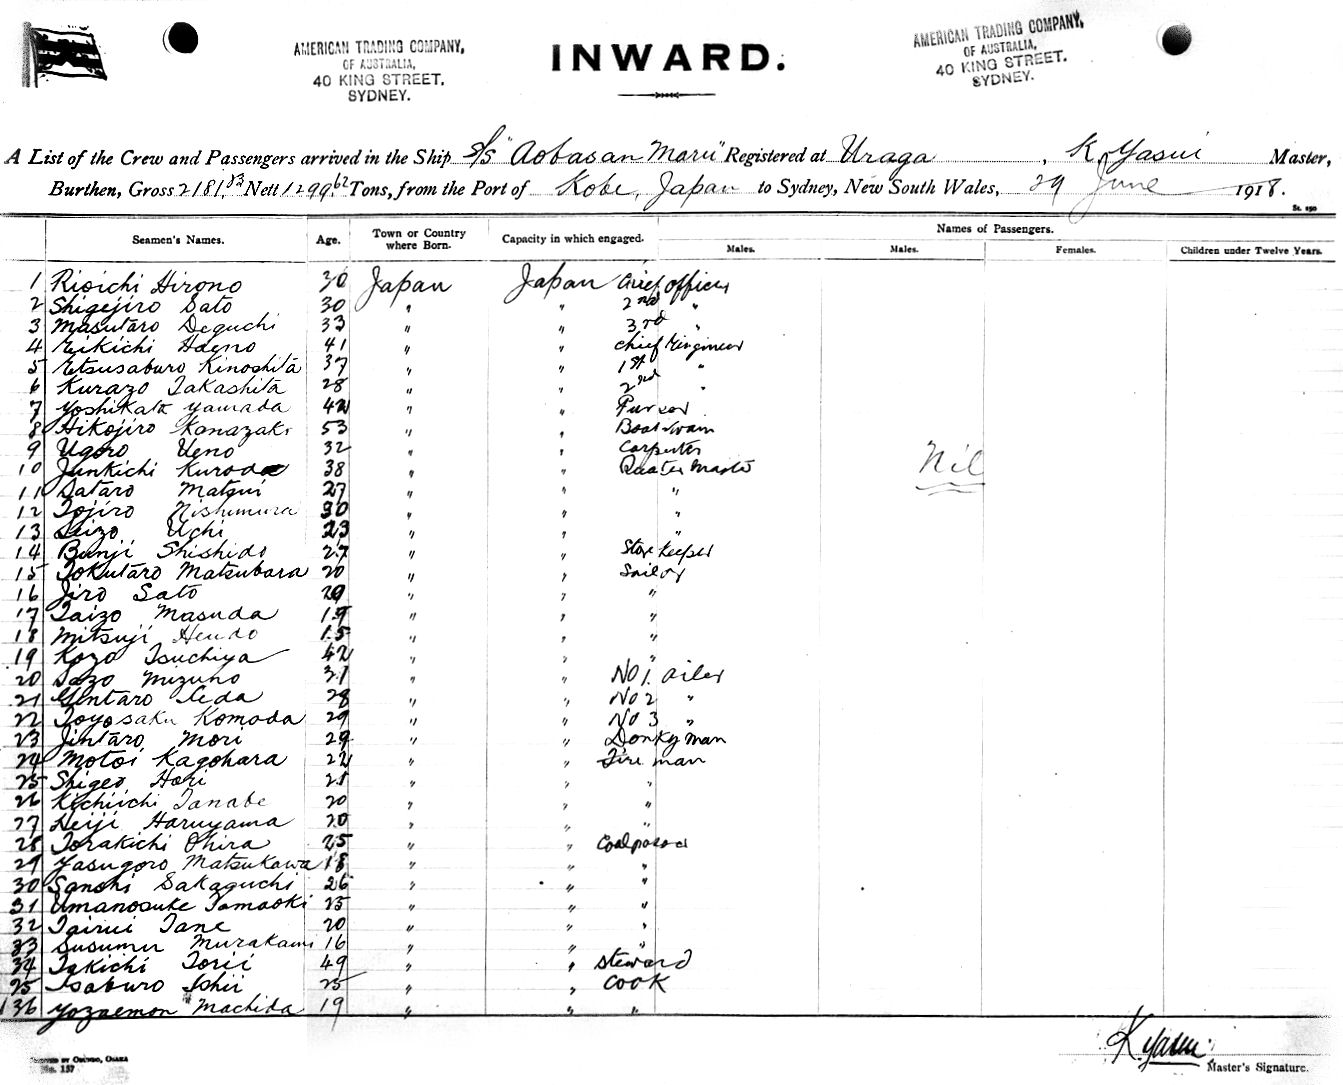 AMERICAN TRADING COMPANY,
OF AUSTRALIA,
40 KING STREET,
SYDNEY.
INWARD.
AMERICAN TRADING COMPANY,
OF AUSTRALIA,
40 KING STREET.
SYDNEY.
A List of the Crew and Passengers arrived in the Ship S/S "Aobasan Maru" Registered at Uraga, K. Yasui Master,
Burthen, Gross 2181.83 Nett 1299.62 Tons, from the Port of Kobe, Japan to Sydney, New South Wales, 29 June 1918.
St. 190
Seamen's Names. Age. Town or Country where Born. Capacity in which engaged. Names of Passengers.
Males. Males. Females. Children under Twelve Years.
1 Rioichi Hirono 30 Japan Japan Chief officer
2 Shigejiro Sato 30 " " 2nd "
3 Masutaro Deguchi 33 " " 3rd "
4 Eikichi 41 " " Chief Engineer
5 Etsusaburo Kinoshita 37 " " 1st "
6 Kurazo Takashita 28 " " 2nd "
7 Yoshikata Yamada 42 " " Purser
8 Hikojiro Kanazaki 53 " " Boatswain
9 Ugoro Ueno 32 " " Carpenter
10 Junkichi Kuroda 38 " " Quater Master
Nil
11 Sataro Matsui 27 " " "
12 Tojiro Nishimura 30 " " "
13 Seizo Uchi 23 " " "
14 Bunji Shishido 27 " " Store keeper
15 Tokutaro Matsubara 20 " " Sailor
16 Jiro Sato 29 " " "
17 Taizo Masuda 19 " " "
18 Mitsuji Hendo 15 " " "
19 Kozo Tsuchiya 42 " " "
20 Sazo Mizuno 31 " " No 1. oiler
21 Gentaro Ueda 28 " " No 2 "
22 Toyosaku Komoda 29 " " No 3 "
23 Jintaro Mori 29 " " Donkyman
24 Motoi Kagohara 22 " " Fire man
25 Shigeo Hori 21 " " "
26 Kichiichi Tanabe 20 " " "
27 Heiji Haruyama 20 " " "
28 Torakichi Ohira 25 " " Coalpasser
29 Yasugoro Matsukawa 18 " " "
30 Sanshi Sakaguchi 26 " " "
31 Umanosuke Tamaoki 25 " " "
32 Tairui Tane 20 " " "
33 Susumu Murakami 16 " " "
34 Takichi Torii 49 " " Steward
35 Isaburo Ishii 25 " " Cook
136 Yozaemon Machida 19 " " "
K. Yasui
Master's Signature.
No. 157